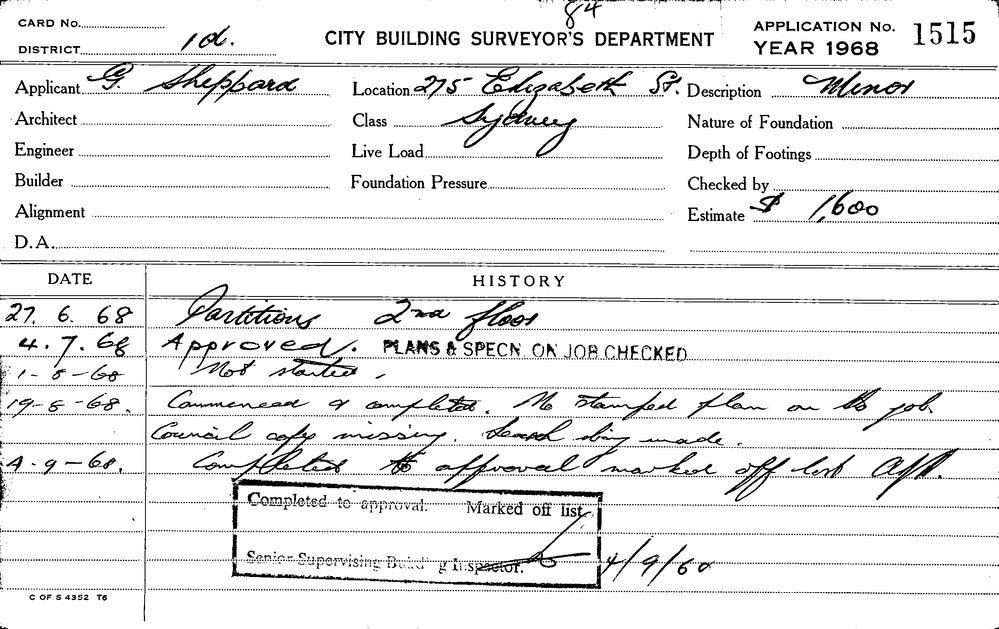 84
CARD No.
DISTRICT 1d.
CITY BUILDING SURVEYOR'S DEPARTMENT
APPLICATION No. 1515
YEAR 1968
Applicant G. Sheppard
Location 275 Elizabeth St.
Description Minor
Architect
Class Sydney
Nature of Foundation
Engineer
Live Load
Depth of Footings
Builder
Foundation Pressure
Checked by
Alignment
Estimate $ 1,600
D.A.
DATE HISTORY
27. 6. 68 Partitions 2nd floor
4. 7. 68 Approved. PLANS & SPECN. ON JOB CHECKED
1-8-68 Not started.
19-8-68. Commenced & completed. No stamped plan on the job.
Council copy missing. Search being made.
4-9-68. Completed to approval marked off list
Completed to approval. Marked off list
Senior Supervising Build g Inspector. 4/9/68
C OF S 4352 T6